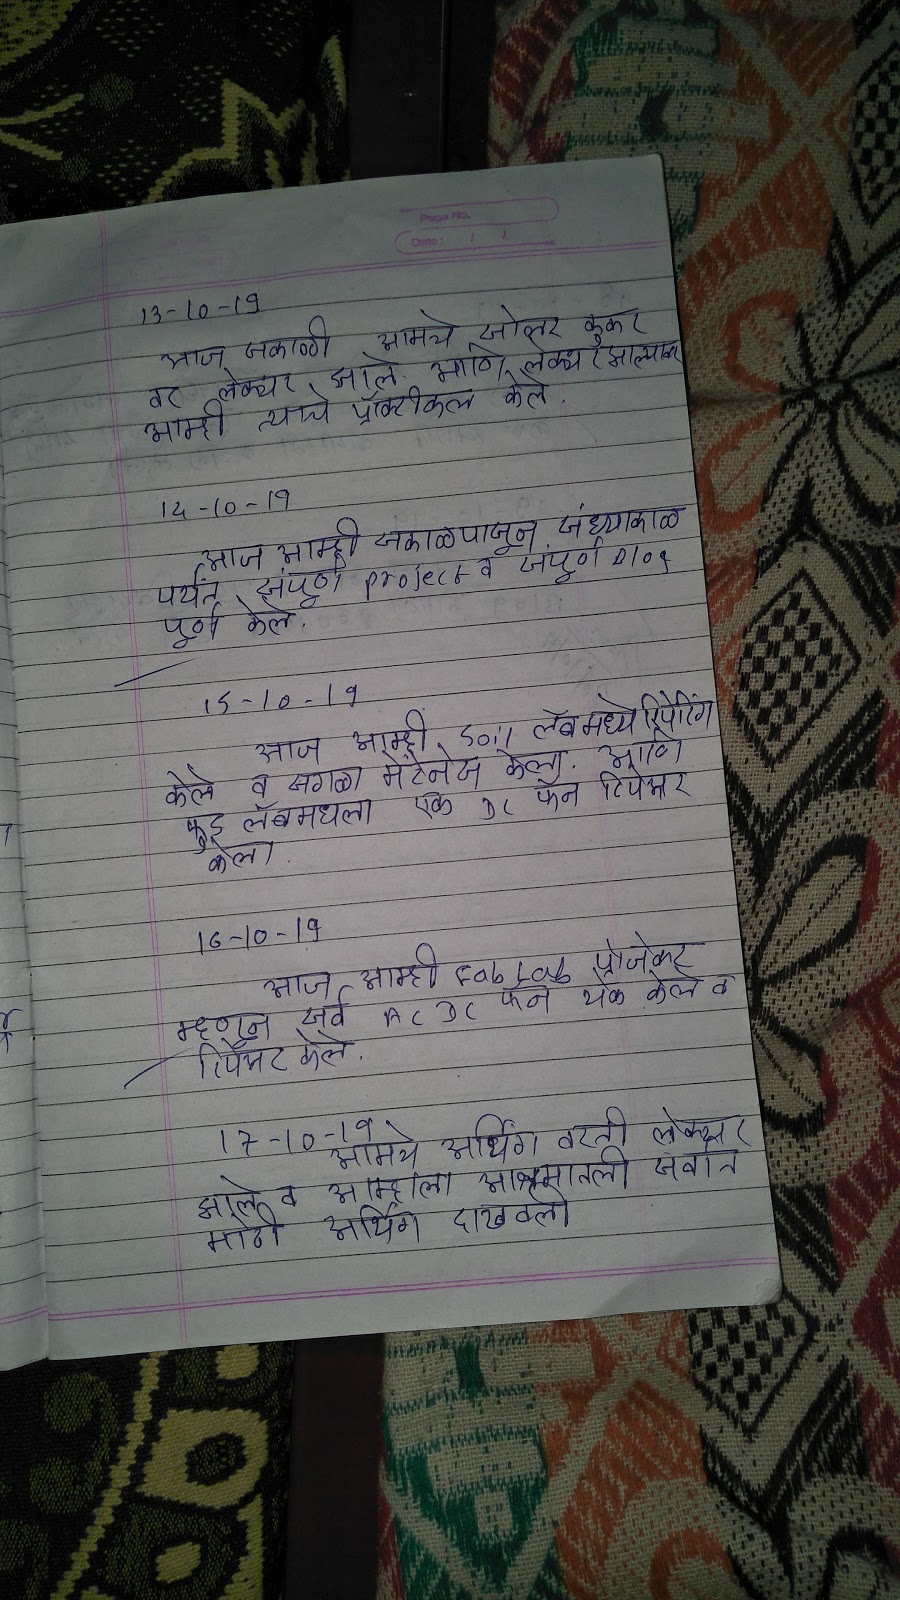 Page No.
Date: / /
13-10-19
आज सकाळी आमचे सोलर कुकर
वर लेक्चर झाले. आणि लेक्चर झाल्यावर
आम्ही त्याचे प्रॅक्टीकल केले.
14-10-19
आज आम्ही सकाळपासून संध्याकाळ
पर्यंत संपूर्ण project व संपूर्ण Blog
पूर्ण केले.
15-10-19
आज आम्ही soil लॅबमध्ये रिपेरिंग
केले व सगळा मेंटेनेंज केला. आणि
फुड लॅबमधला एक DC फॅन रिपेअर
केला.
16-10-19
आज आम्ही Fab Lab प्रोजेक्ट
म्हणून सर्व AC DC फॅन चेक केले व
रिपेअर केले.
17-10-19
आमचे अर्थिंग वरती लेक्चर
झाले व आम्हाला आश्रमातली सर्वात
मोठी अर्थिंग दाखवली